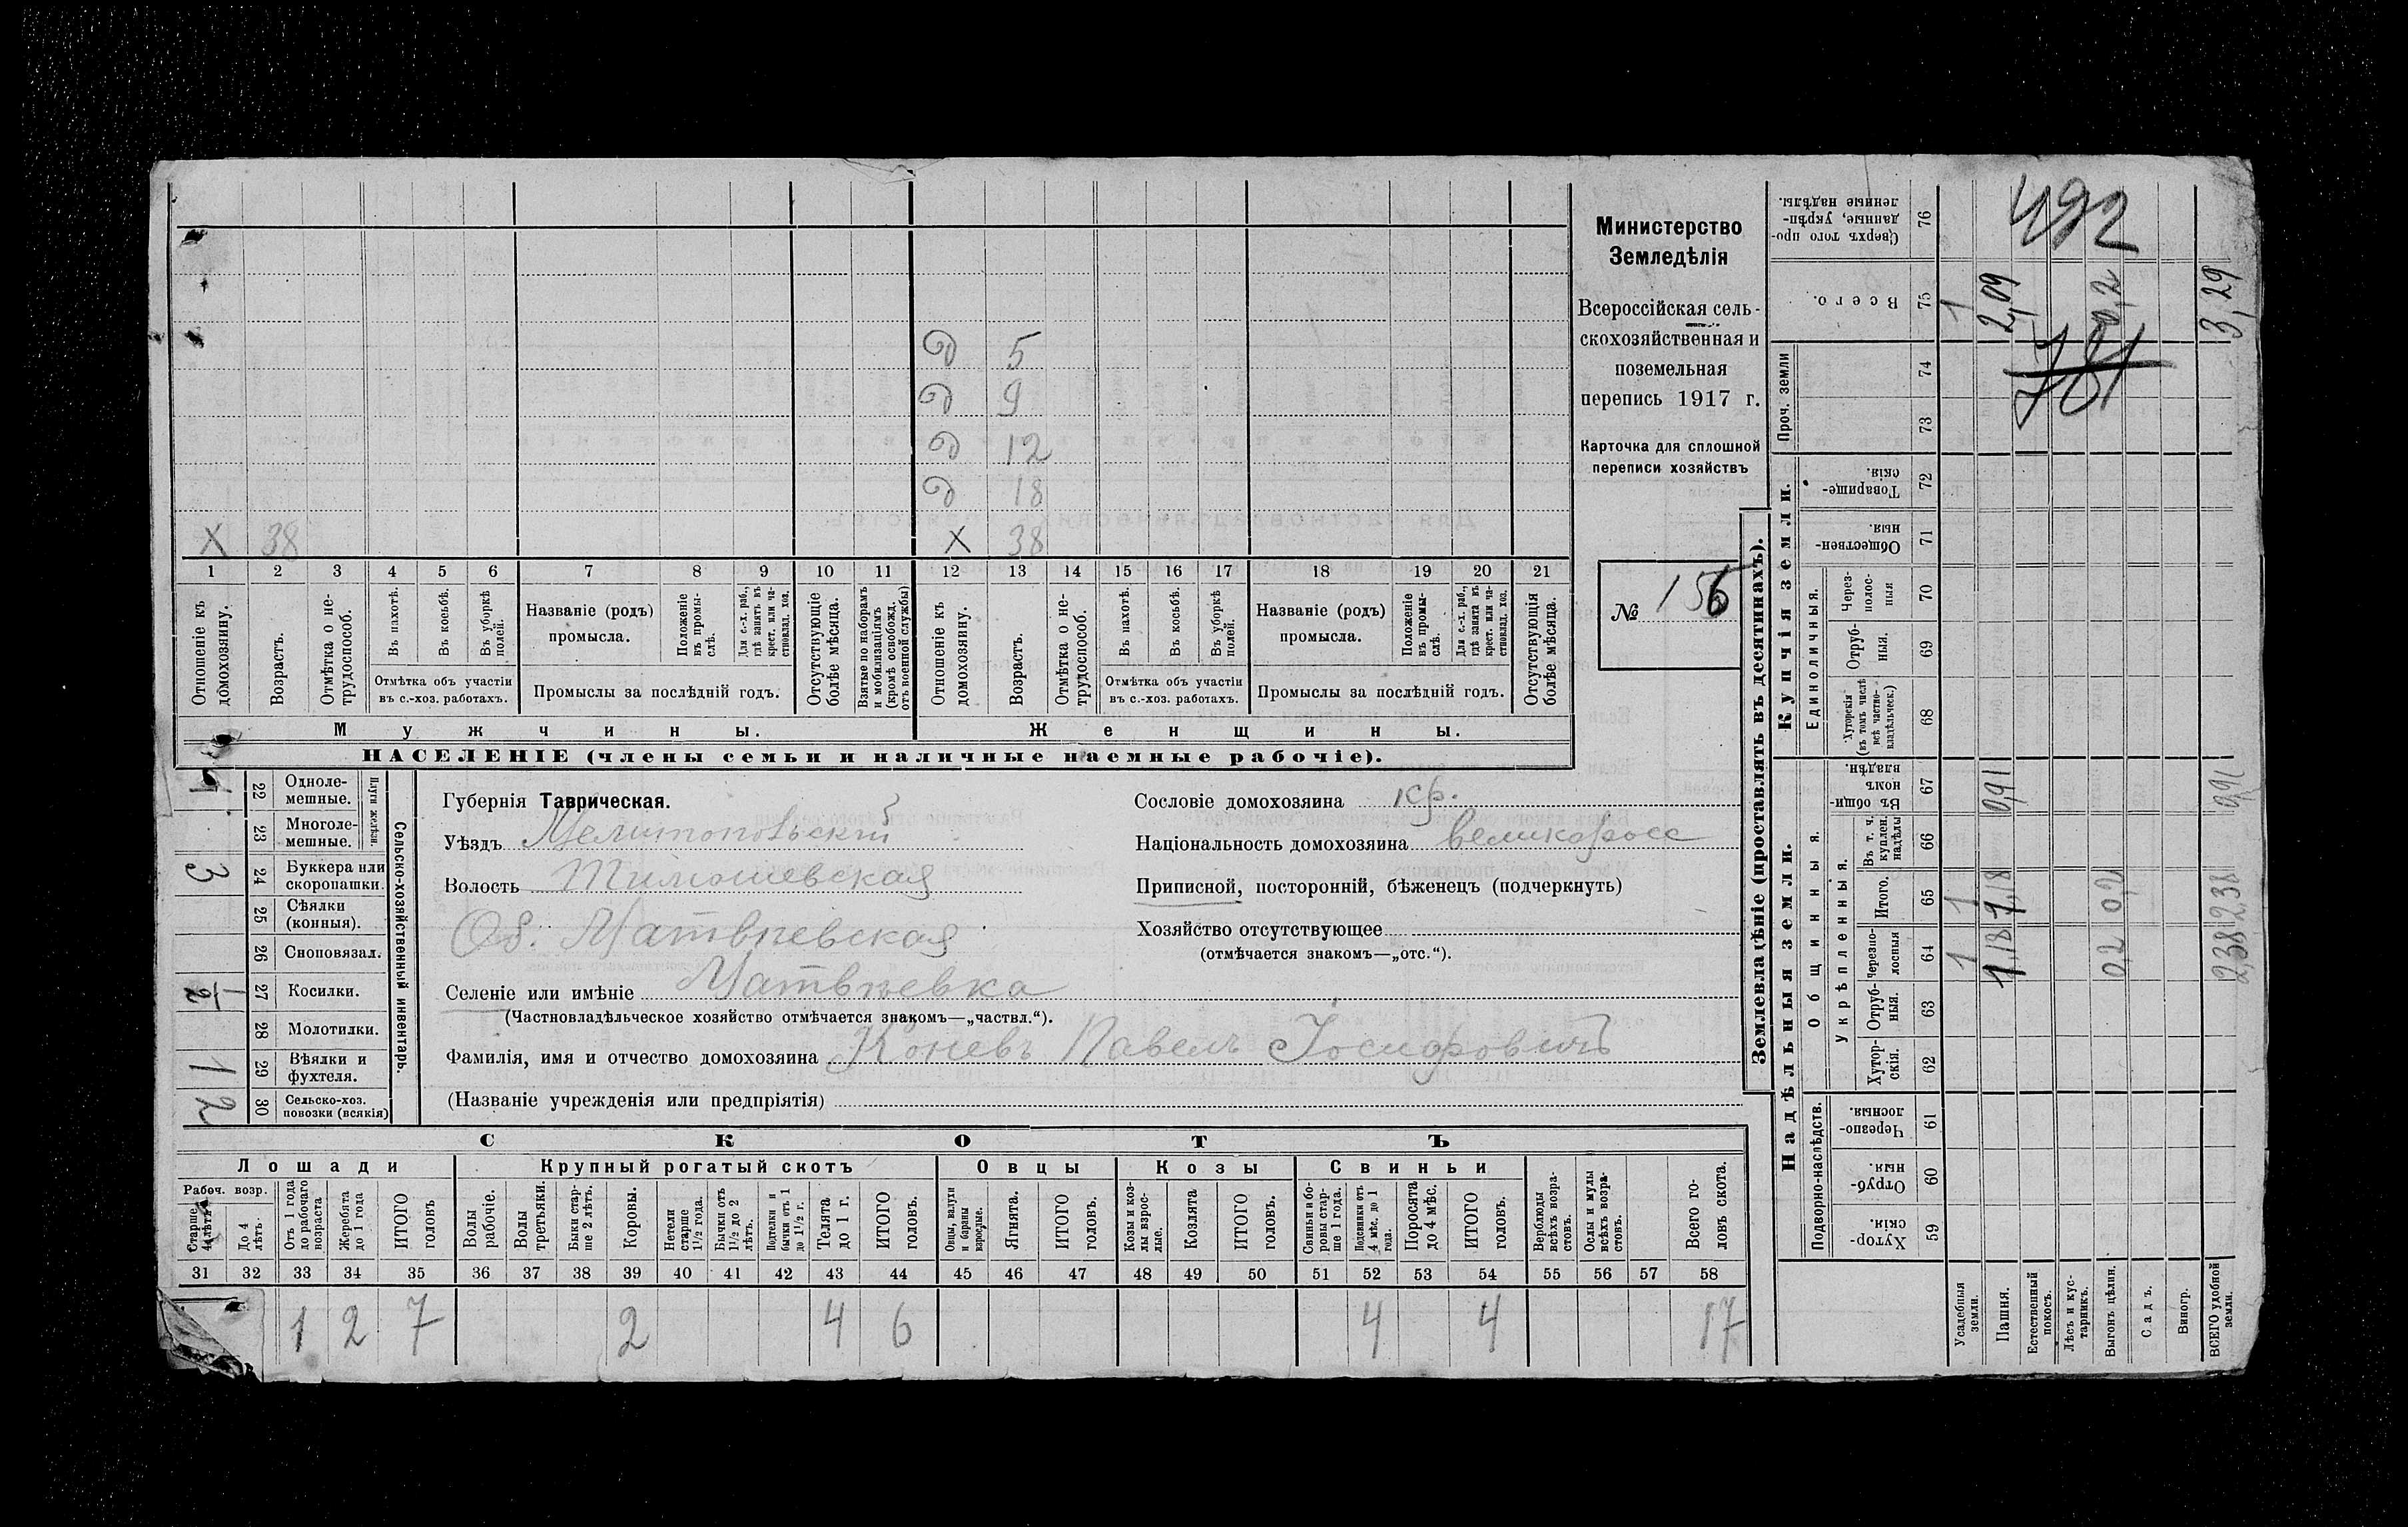 Министерство
Земледѣлія
Всероссійская сель-
скохозяйственная и
поземельная
перепись 1917 г.
Карточка для сплошной
переписи хозяйствъ
№ 156
д 5
д 9
д 12
д 18
х 38 х 38
1 2 3 4 5 6 7 8 9 10 11 12 13 14 15 16 17 18 19 20 21
Отношеніе къ домохозяину.
Возрастъ.
Отмѣтка о не-трудоспособ.
Въ пахотѣ.
Въ косьбѣ.
Въ уборкѣ полей.
Отмѣтка объ участіи
въ с.-хоз. работахъ.
Названіе (родъ)
промысла.
Положеніе въ промы-слѣ.
Для с.-х. раб., гдѣ занятъ въ крест. или ча-стновлад. хоз.
Промыслы за послѣдній годъ.
Отсутствующіе болѣе мѣсяца.
Взятые по наборамъ и мобилизаціямъ (кромѣ освобожд. отъ военной службы)
Отношеніе къ домохозяину.
Возрастъ.
Отмѣтка о не-трудоспособ.
Въ пахотѣ.
Въ косьбѣ.
Въ уборкѣ полей.
Отмѣтка объ участіи
въ с.-хоз. работахъ.
Названіе (родъ)
промысла.
Положеніе въ промы-слѣ.
Для с.-х. раб., гдѣ занята въ крест. или ча-стновлад. хоз.
Промыслы за послѣдній годъ.
Отсутствующія болѣе мѣсяца.
Мужчины. Женщины.
НАСЕЛЕНІЕ (члены семьи и наличные наемные рабочіе).
Сельско-хозяйственный инвентарь.
Плуги желѣзн.
22 Одноле-мешные.
23 Многоле-мешные.
3 24 Буккера или скоропашки.
25 Сѣялки (конныя).
26 Сноповязал.
1/2 27 Косилки.
28 Молотилки.
1 29 Вѣялки и фухтеля.
2 30 Сельско-хоз. повозки (всякія)
Губернія Таврическая.
Уѣздъ Мелитопольскій
Волость Тимошевская
Об. Матвѣевская
Селеніе или имѣніе Матвѣевка
(Частновладѣльческое хозяйство отмѣчается знакомъ—„частвл.“).
Фамилія, имя и отчество домохозяина Коневъ Павелъ Іосифовичъ
(Названіе учрежденія или предпріятія)
Сословіе домохозяина кр.
Національность домохозяина великоросс
Приписной, посторонній, бѣженецъ (подчеркнуть)
Хозяйство отсутствующее
(отмѣчается знакомъ—„отс.“).
СКОТЪ
Лошади Крупный рогатый скотъ Овцы Козы Свиньи
Рабоч. возр.
Старше 4 лѣтъ
До 4 лѣтъ.
Отъ 1 года до рабочаго возраста
Жеребята до 1 года
ИТОГО головъ
Волы рабочіе.
Волы третьяки.
Быки стар-ше 2 лѣтъ.
Коровы.
Нетели старше 1½ года.
Бычки отъ 1½ до 2 лѣтъ.
Подтелки и бычки отъ 1 до 1½ г.
Телята до 1 г.
ИТОГО головъ.
Овцы, валухи и бараны взрослые.
Ягнята.
ИТОГО головъ.
Козы и коз-лы взрос-лые.
Козлята
ИТОГО головъ.
Свиньи и бо-ровы стар-ше 1 года.
Подсвинки отъ 4 мѣс. до 1 года.
Поросята до 4 мѣс.
ИТОГО головъ.
Верблюды всѣхъ возра-стовъ.
Ослы и мулы всѣхъ возра-стовъ.
Всего го-ловъ скота.
31 32 33 34 35 36 37 38 39 40 41 42 43 44 45 46 47 48 49 50 51 52 53 54 55 56 57 58
1 2 7 2 4 6 4 4 17
Землевладѣніе (проставлять въ десятинахъ).
Купчія земли.
Надѣльныя земли.
Сверхъ того про-данные, укрѣп-ленные надѣлы. 76
492
Всего. 75 1 2,09 0,2 3,29
781
Проч. земли 74
73
Товарище-скія. 72
Обществен-ныя. 71
Единоличныя.
Через-полос-ныя 70
Отруб-ныя. 69
Хуторскія (въ томъ числѣ всѣ частно-владѣльческ.) 68
Общинныя.
Въ общин-номъ владѣн. 67 0,91 0,91
Укрѣпленныя.
Въ т. ч. куплен. надѣлы 66
Итого. 65 1 1,18 0,2 2,38
Черезпо-лосныя 64 1 1,18 0,2 2,38
Отруб-ныя. 63
Хутор-скія. 62
Подворно-наслѣдств.
Черезпо-лосныя. 61
Отруб-ныя. 60
Хутор-скія. 59
Усадебныя земли.
Пашня.
Естественный покосъ.
Лѣсъ и кус-тарникъ.
Выгонъ цѣлин.
Садъ.
Виногр.
ВСЕГО удобной земли.